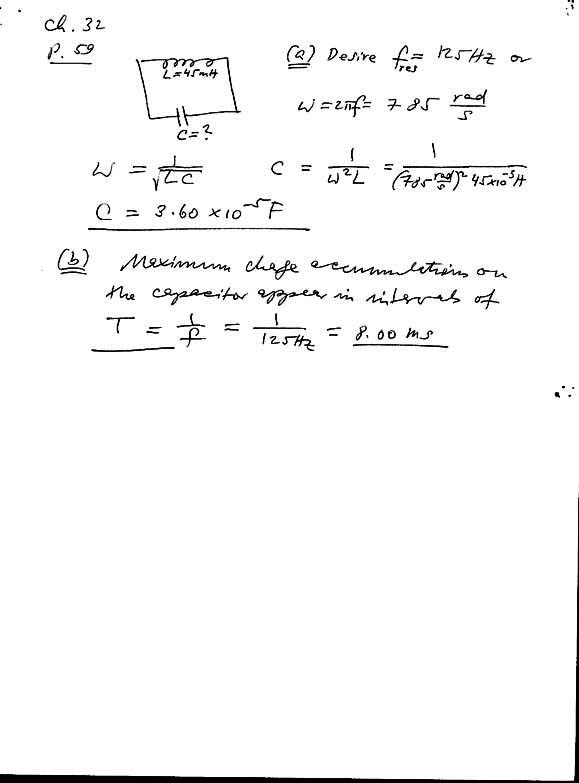 Ch. 32
P. 59
L = 45 mH
C = ?
(a) Desire f_res = 125 Hz or
ω = 2πf = 785 rad/s
ω = 1/√LC
C = 1/ω²L = 1/(785 rad/s)² 45×10⁻³H
C = 3.60 × 10⁻⁵ F
(b) Maximum charge accumulations on
the capacitor appear in intervals of
T = 1/f = 1/125Hz = 8.00 ms